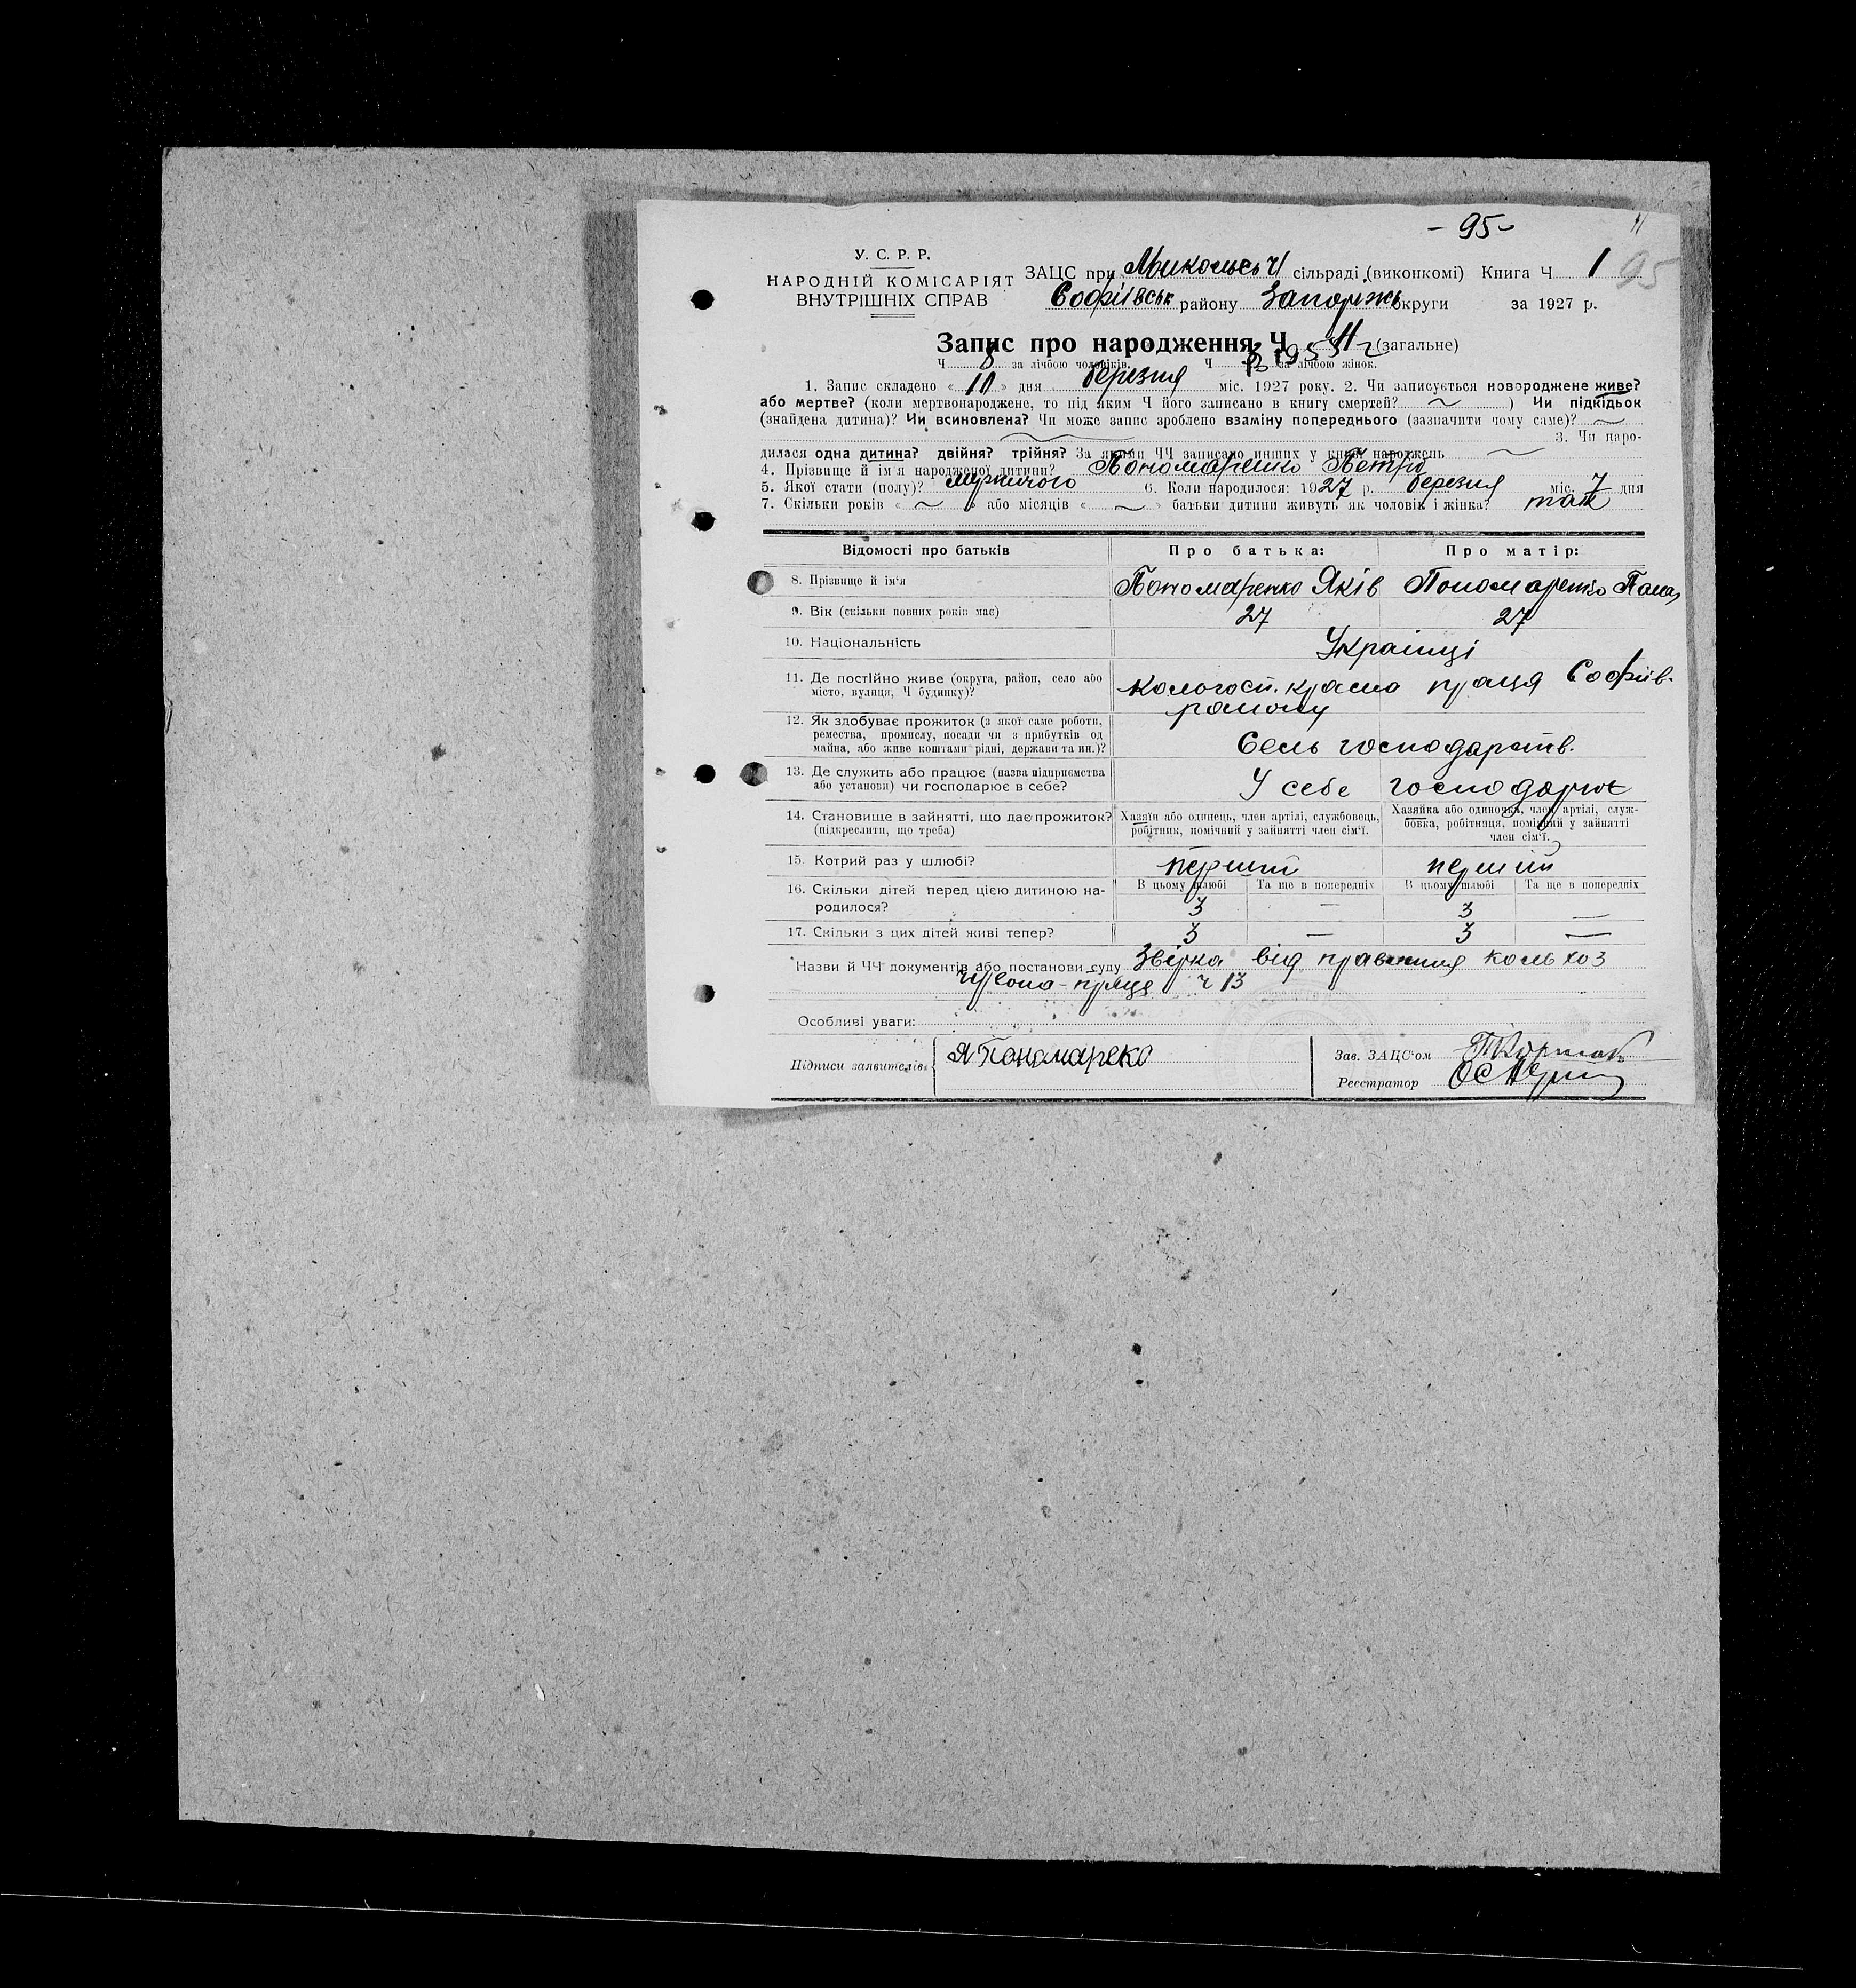 - 95 -
У. С. Р. Р.
НАРОДНІЙ КОМІСАРІЯТ
ВНУТРІШНІХ СПРАВ
ЗАЦС при сільраді (виконкомі) Книга Ч 1 95
Софіївськ району Запоріжь округи за 1927 р.
Запис про народження Ч 11 (загальне)
Ч 8 за лічбою чоловіків. Ч за лічбою жінок.
1. Запис складено « 10 » дня березня міс. 1927 року. 2. Чи записується новороджене живе?
або мертве? (коли мертвонароджене, то під яким Ч його записано в книгу смертей? ~ ) Чи підкідьок
(знайдена дитина)? Чи всиновлена? Чи може запис зроблено взаміну попереднього (зазначити чому саме)? ~
~ 3. Чи наро-
дилася одна дитина? двійня? трійня? За якими ЧЧ записано инших у книзі народжень ~
4. Прізвище й ім'я народженої дитини? Пономаренко Петро
5. Якої стати (полу)? 6. Коли народилося: 1927 р. березня міс. 7 дня
7. Скільки років « ~ » або місяців « ~ » батьки дитини живуть як чоловік і жінка?
Відомості про батьків Про батька: Про матір:
8. Прізвище й ім'я Пономаренко Яків Пономаренко
9. Вік (скільки повних років має) 27 27
10. Національність Українці
11. Де постійно живе (округа, район, село або
місто, вулиця, Ч будинку)? праця Софіїв.
району
12. Як здобуває прожиток (з якої саме роботи,
ремества, промислу, посади чи з прибутків од
майна, або живе коштами рідні, держави та ин.)? Сель господарств.
13. Де служить або працює (назва підприємства
або установи) чи господарює в себе? У себе
14. Становище в зайнятті, що дає прожиток?
(підкреслити, що треба)
Хазяїн або одинець, член артілі, службовець,
робітник, помічний у зайнятті член сім'ї.
Хазяйка або одиночка, член артілі, служ-
бовка, робітниця, помічний у зайнятті
член сім'ї.
15. Котрий раз у шлюбі? перший перший
16. Скільки дітей перед цією дитиною на-
родилося?
В цьому шлюбі Та ще в попередніх В цьому шлюбі Та ще в попередніх
3 — 3 —
17. Скільки з цих дітей живі тепер? 3 — 3 —
Назви й ЧЧ документів або постанови суду від правління кольхоз
праця ч 13
Особливі уваги:
Підписи заявителів: Я Пономареко
Зав. ЗАЦС'ом
Реєстратор